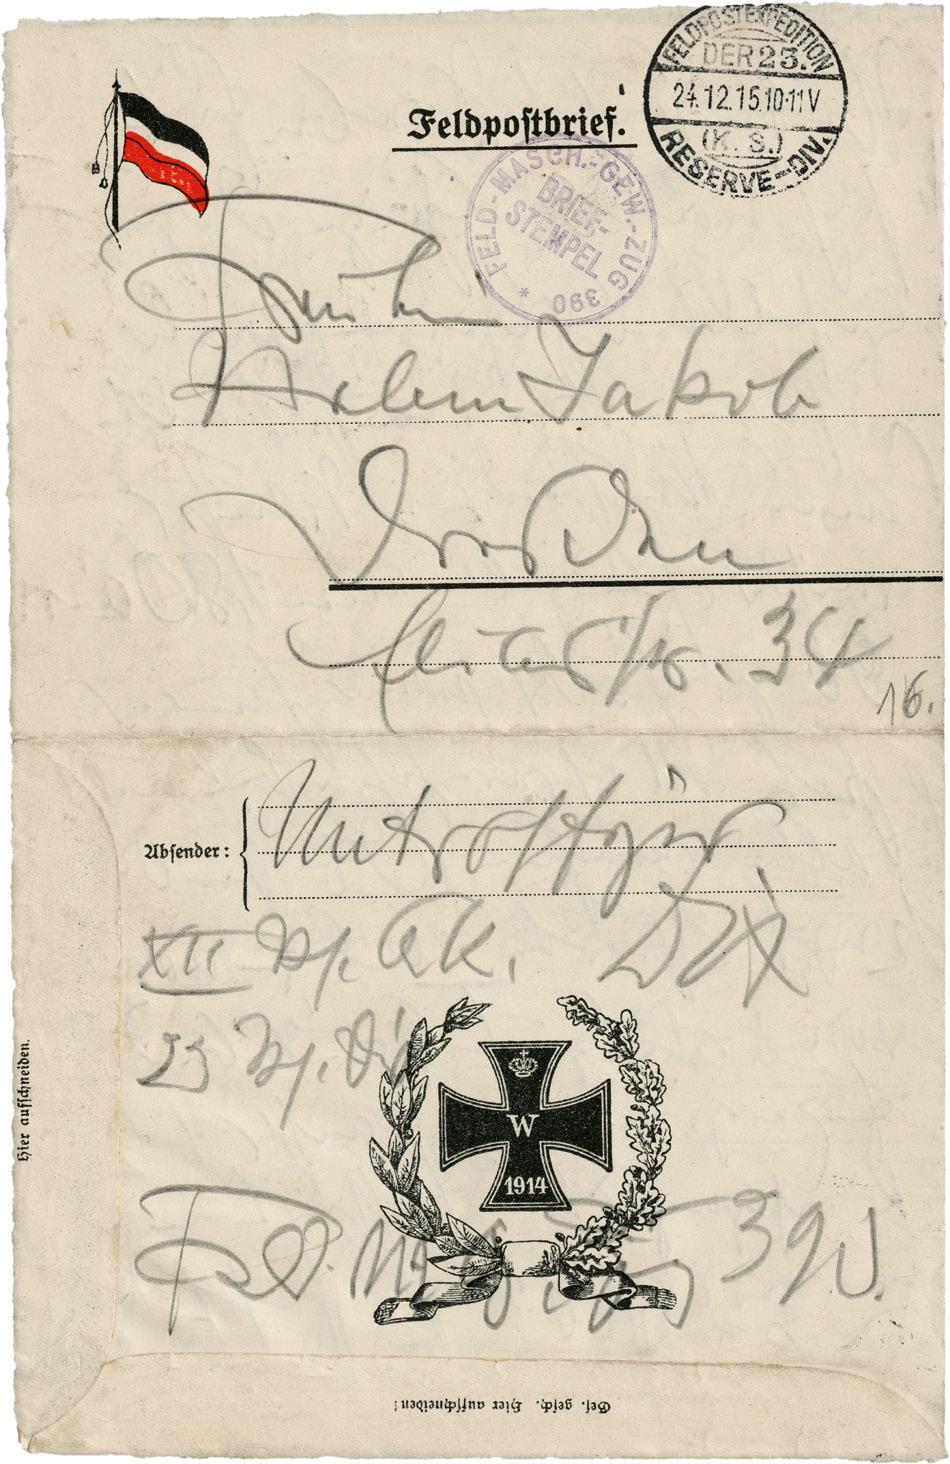 Feldpostbrief.
FELDPOSTEXPEDITION
DER 23.
24.12.15.10-11V
(K. S.)
RESERVE-DIV.
FELD-MASCH.-GEW.-ZUG
BRIEF-
STEMPEL
* 390
Fräulein
Helene Jakob
Dresden
34
16.
Absender:
Unteroffizier
XII Rs. A.K. Dix
23 Rs. Div
W
1914
Feld. M. G. Zug 390.
Hier aufschneiden.
Ges. gesch. Hier aufschneiden!